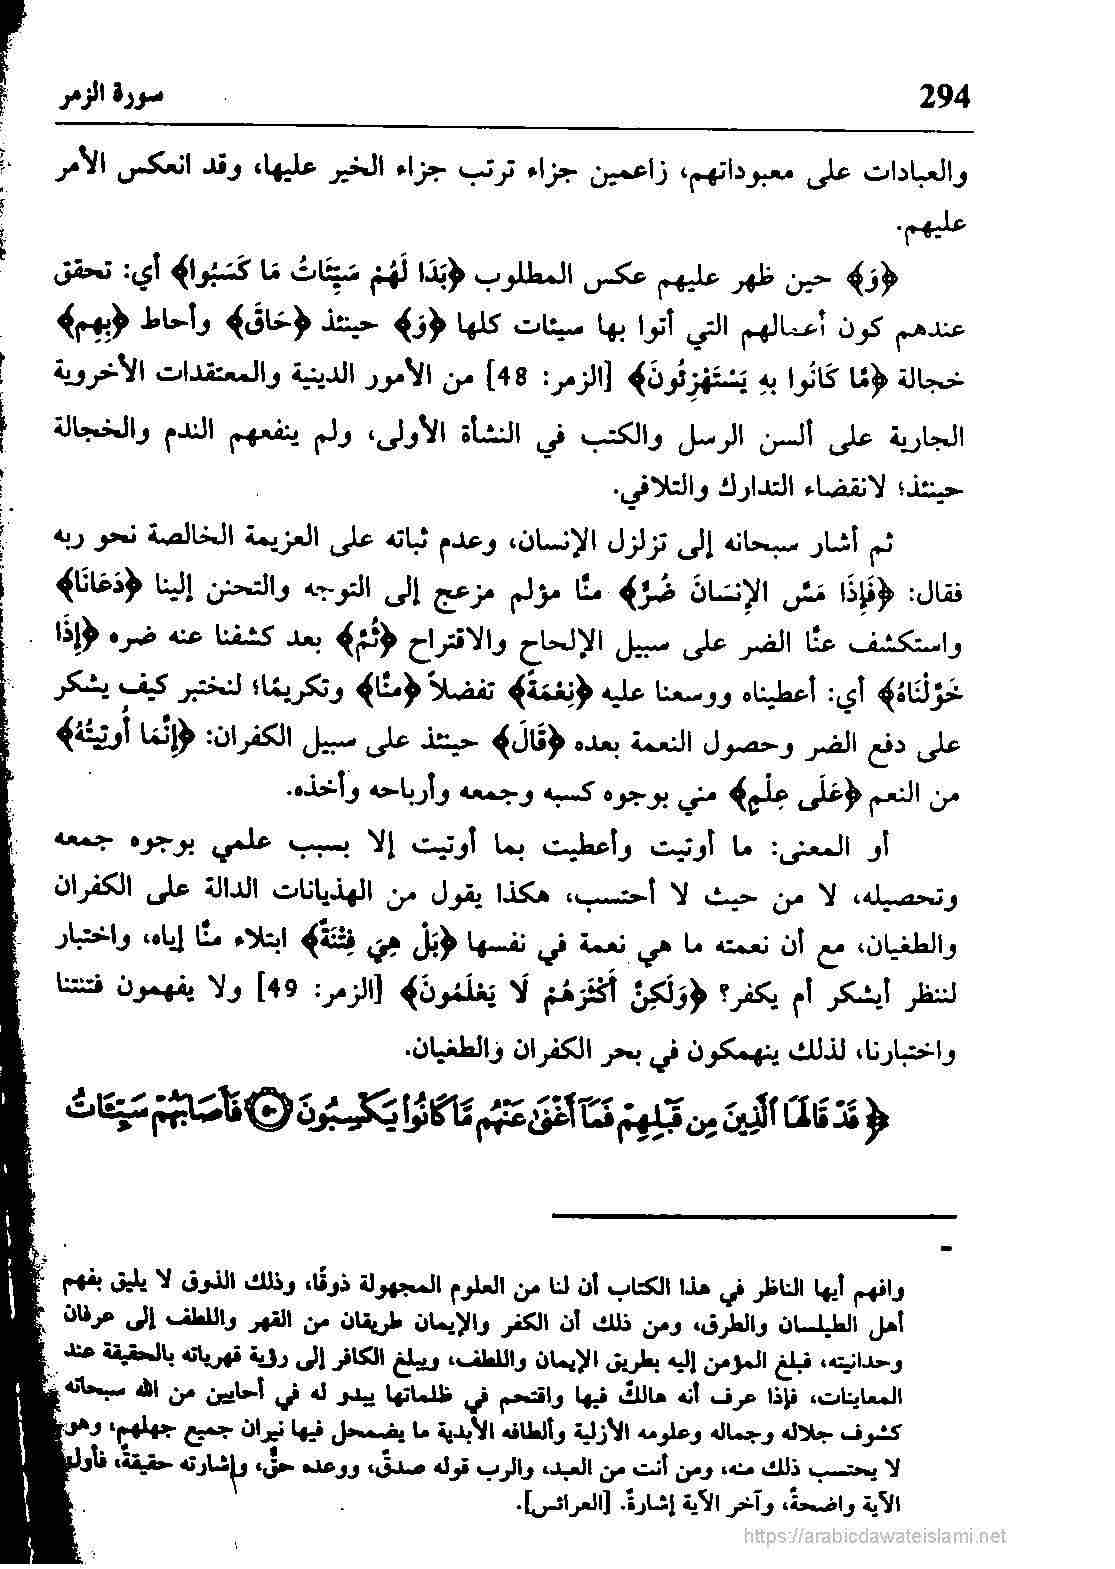 294
سورة الزمر
والعبادات على معبوداتهم، زاعمين جزاء ترتب جزاء الخير عليها، وقد انعكس الأمر
عليهم.
﴿وَ﴾ حين ظهر عليهم عكس المطلوب ﴿بَدَا لَهُمْ سَيِّئَاتُ مَا كَسَبُوا﴾ أي: تحقق
عندهم كون أعمالهم التي أتوا بها سيئات كلها ﴿وَ﴾ حينئذ ﴿حَاقَ﴾ وأحاط ﴿بِهِم﴾
خجالة ﴿مَّا كَانُوا بِهِ يَسْتَهْزِئُونَ﴾ [الزمر: 48] من الأمور الدينية والمعتقدات الأخروية
الجارية على ألسن الرسل والكتب في النشأة الأولى، ولم ينفعهم الندم والخجالة
حينئذ؛ لانقضاء التدارك والتلافي.
ثم أشار سبحانه إلى تزلزل الإنسان، وعدم ثباته على العزيمة الخالصة نحو ربه
فقال: ﴿فَإِذَا مَسَّ الإِنسَانَ ضُرٌّ﴾ منَّا مؤلم مزعج إلى التوجه والتحنن إلينا ﴿دَعَانَا﴾
واستكشف عنَّا الضر على سبيل الإلحاح والاقتراح ﴿ثُمَّ﴾ بعد كشفنا عنه ضره ﴿إِذَا
خَوَّلْنَاهُ﴾ أي: أعطيناه ووسعنا عليه ﴿نِعْمَةً﴾ تفضلاً ﴿مِنَّا﴾ وتكريمًا؛ لنختبر كيف يشكر
على دفع الضر وحصول النعمة بعده ﴿قَالَ﴾ حينئذ على سبيل الكفران: ﴿إِنَّمَا أُوتِيتُهُ﴾
من النعم ﴿عَلَى عِلْمٍ﴾ مني بوجوه كسبه وجمعه وأرباحه وأخذه.
أو المعنى: ما أوتيت وأعطيت بما أوتيت إلا بسبب علمي بوجوه جمعه
وتحصيله، لا من حيث لا أحتسب، هكذا يقول من الهذيانات الدالة على الكفران
والطغيان، مع أن نعمته ما هي نعمة في نفسها ﴿بَلْ هِيَ فِتْنَةٌ﴾ ابتلاء منَّا إياه، واختبار
لننظر أيشكر أم يكفر؟ ﴿وَلَكِنَّ أَكْثَرَهُمْ لَا يَعْلَمُونَ﴾ [الزمر: 49] ولا يفهمون فتنتنا
واختبارنا، لذلك ينهمكون في بحر الكفران والطغيان.
﴿قَدْ قَالَهَا ٱلَّذِينَ مِن قَبْلِهِمْ فَمَآ أَغْنَىٰ عَنْهُم مَّا كَانُوا۟ يَكْسِبُونَ ۝٥٠ فَأَصَابَهُمْ سَيِّـَٔاتُ
-
وافهم أيها الناظر في هذا الكتاب أن لنا من العلوم المجهولة ذوقًا، وذلك الذوق لا يليق بفهم
أهل الطيلسان والطرق، ومن ذلك أن الكفر والإيمان طريقان من القهر واللطف إلى عرفان
وحدانيته، فبلغ المؤمن إليه بطريق الإيمان واللطف، ويبلغ الكافر إلى رؤية قهرياته بالحقيقة عند
المعاينات، فإذا عرف أنه هالكٌ فيها واقتحم في ظلماتها يبدو له في أحايين من الله سبحانه
كشوف جلاله وجماله وعلومه الأزلية وألطافه الأبدية ما يضمحل فيها نيران جميع جهلهم، وهو
لا يحتسب ذلك منه، ومن أنت من العبد، والرب قوله صدقٌ، ووعده حقٌّ، وإشارته حقيقةٌ، فأول
الآية واضحةٌ، وآخر الآية إشارةٌ. [العرائس].
https://arabicdawateislami.net